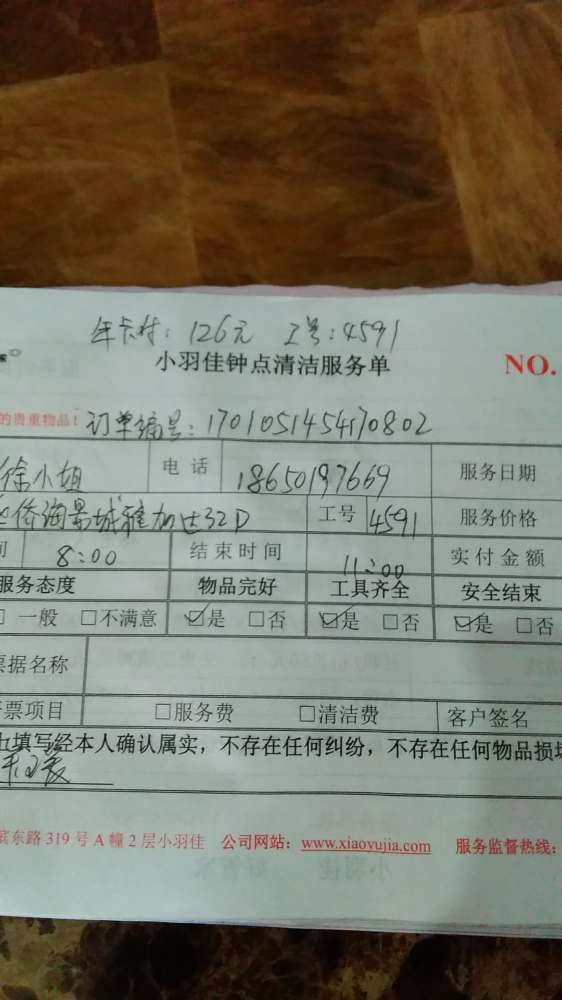 年卡村：126元 工号：4591
小羽佳钟点清洁服务单 NO.
的贵重物品！ 订单编号：1701051454170802
徐小姐 电话 18650197669 服务日期
侨海景城雅加达32D 工号 4591 服务价格
间 8:00 结束时间 11:00 实付金额
服务态度 物品完好 工具齐全 安全结束
□一般 □不满意 ☑是 □否 ☑是 □否 ☑是 □否
票据名称
开票项目 □服务费 □清洁费 客户签名
上填写经本人确认属实，不存在任何纠纷，不存在任何物品损坏
滨东路319号A幢2层小羽佳 公司网站：www.xiaoyujia.com 服务监督热线：